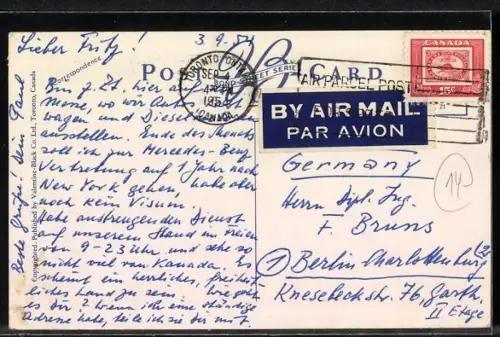 Lieber Fritz! 3.9.51
Correspondence
POST CARD
TORONTO ONTARIO
SEP 4
4 PM
1951
CANADA
CANADA
15¢
AIR PARCEL POST
BY AIR MAIL
PAR AVION
Bin z. Zt. hier auf
Messe, wo wir
wagen und Diesel
ausstellen. Ende des Monats
soll ich zur Mercedes-Benz
Vertretung auf 1 Jahr nach
New York gehen, habe aber
noch kein Visum.
Habe anstrengenden Dienst
auf unserem Stand im Freien
von 9-23 Uhr und sehe so
nicht viel von Kanada. Es
scheint ein herrliches, freiheit-
liches Land zu sein. Wie geht
es Dir? Wenn ich eine ständige
Adresse habe, teile ich sie Dir mit.
Beste Grüße! Dein Paul
Copyrighted. Published by Valentine-Black Co. Ltd., Toronto, Canada
Germany
Herrn Dipl. Ing.
F. Bruns
1 Berlin Charlottenburg 2
Knesebeckstr. 76, Garth.
II Etage
14